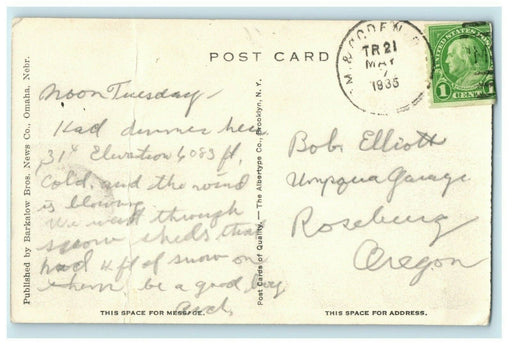 POST CARD
& OGDEN
TR 21
MAY
7
1935
UNITED STATES POSTAGE
1 CENT 1
Noon Tuesday
Had dinner here
31¢ Elevation 6083 ft,
Cold, and the wind
is blowing
We went through
snow sheds that
had 4 ft of snow on
them be a good boy
Bob Elliott
Umpqua Garage
Roseburg
Oregon
Published by Barkalow Bros. News Co., Omaha, Nebr.
Post Cards of Quality. — The Albertype Co., Brooklyn, N. Y.
THIS SPACE FOR MESSAGE.
THIS SPACE FOR ADDRESS.